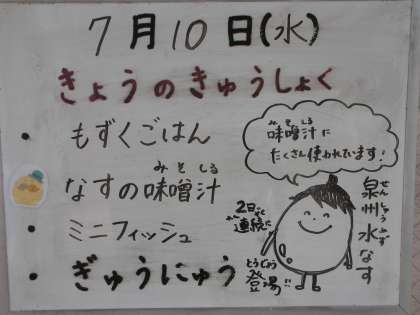 7月10日(水)
きょうのきゅうしょく
もずくごはん
なすの味噌汁
みそしる
ミニフィッシュ
ぎゅうにゅう
味噌汁に
みそしる
たくさん使われています!
泉州水なす
せんしゅうみず
2日連続に
登場!!
とうじょう